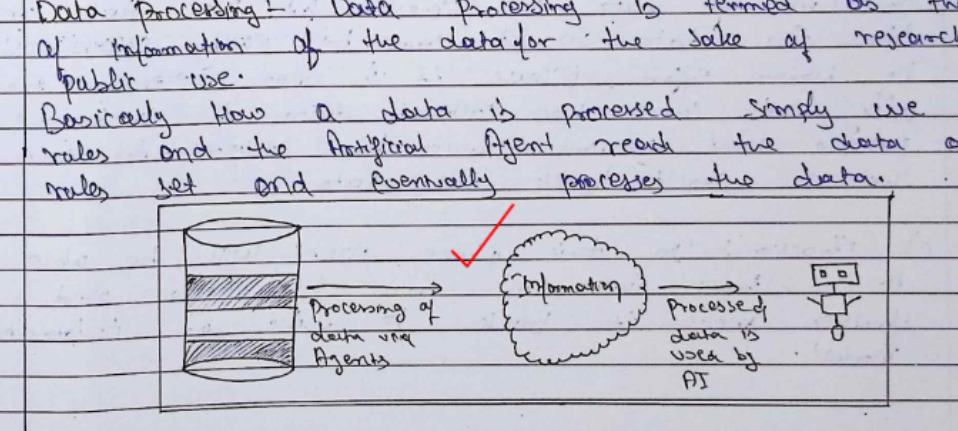 Data Processing:- Data Processing is termed as th
of Information of the data for the sake of research
public use.
Basically How a data is processed simply we
rules and the Artificial Agent read the data a
rules set and eventually processes the data.
Processing of
data via
Agents
Information
Processed
data is
used by
AI